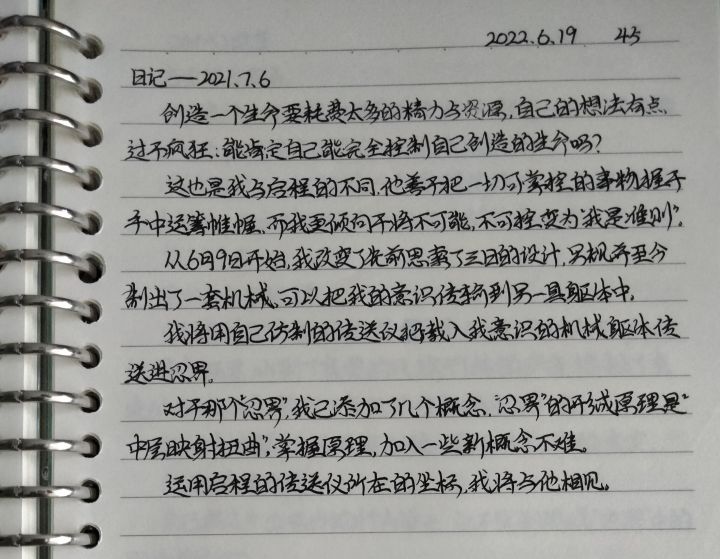 2022.6.19 45
日记——2021.7.6
创造一个生命要耗费太多的精力与资源,自己的想法有点
过于疯狂:能肯定自己能完全控制自己创造的生命吗?
这也是我与启程的不同,他善于把一切可掌控的事物握于
手中运筹帷幄,而我更倾向于将不可能,不可控变为"我是准则"。
从6月9日开始,我改变了先前思索了三日的设计,另机命至今
制出了一套机械,可以把我的意识传输到另一具躯体中。
我将用自己仿制的传送仪把载入我意识的机械躯体传
送进忍界。
对于那个"忍界",我已添加了几个概念,"忍界"的形成原理是"
中层映射扭曲",掌握原理,加入一些新概念不难。
运用启程的传送仪所在的坐标,我将与他相见。